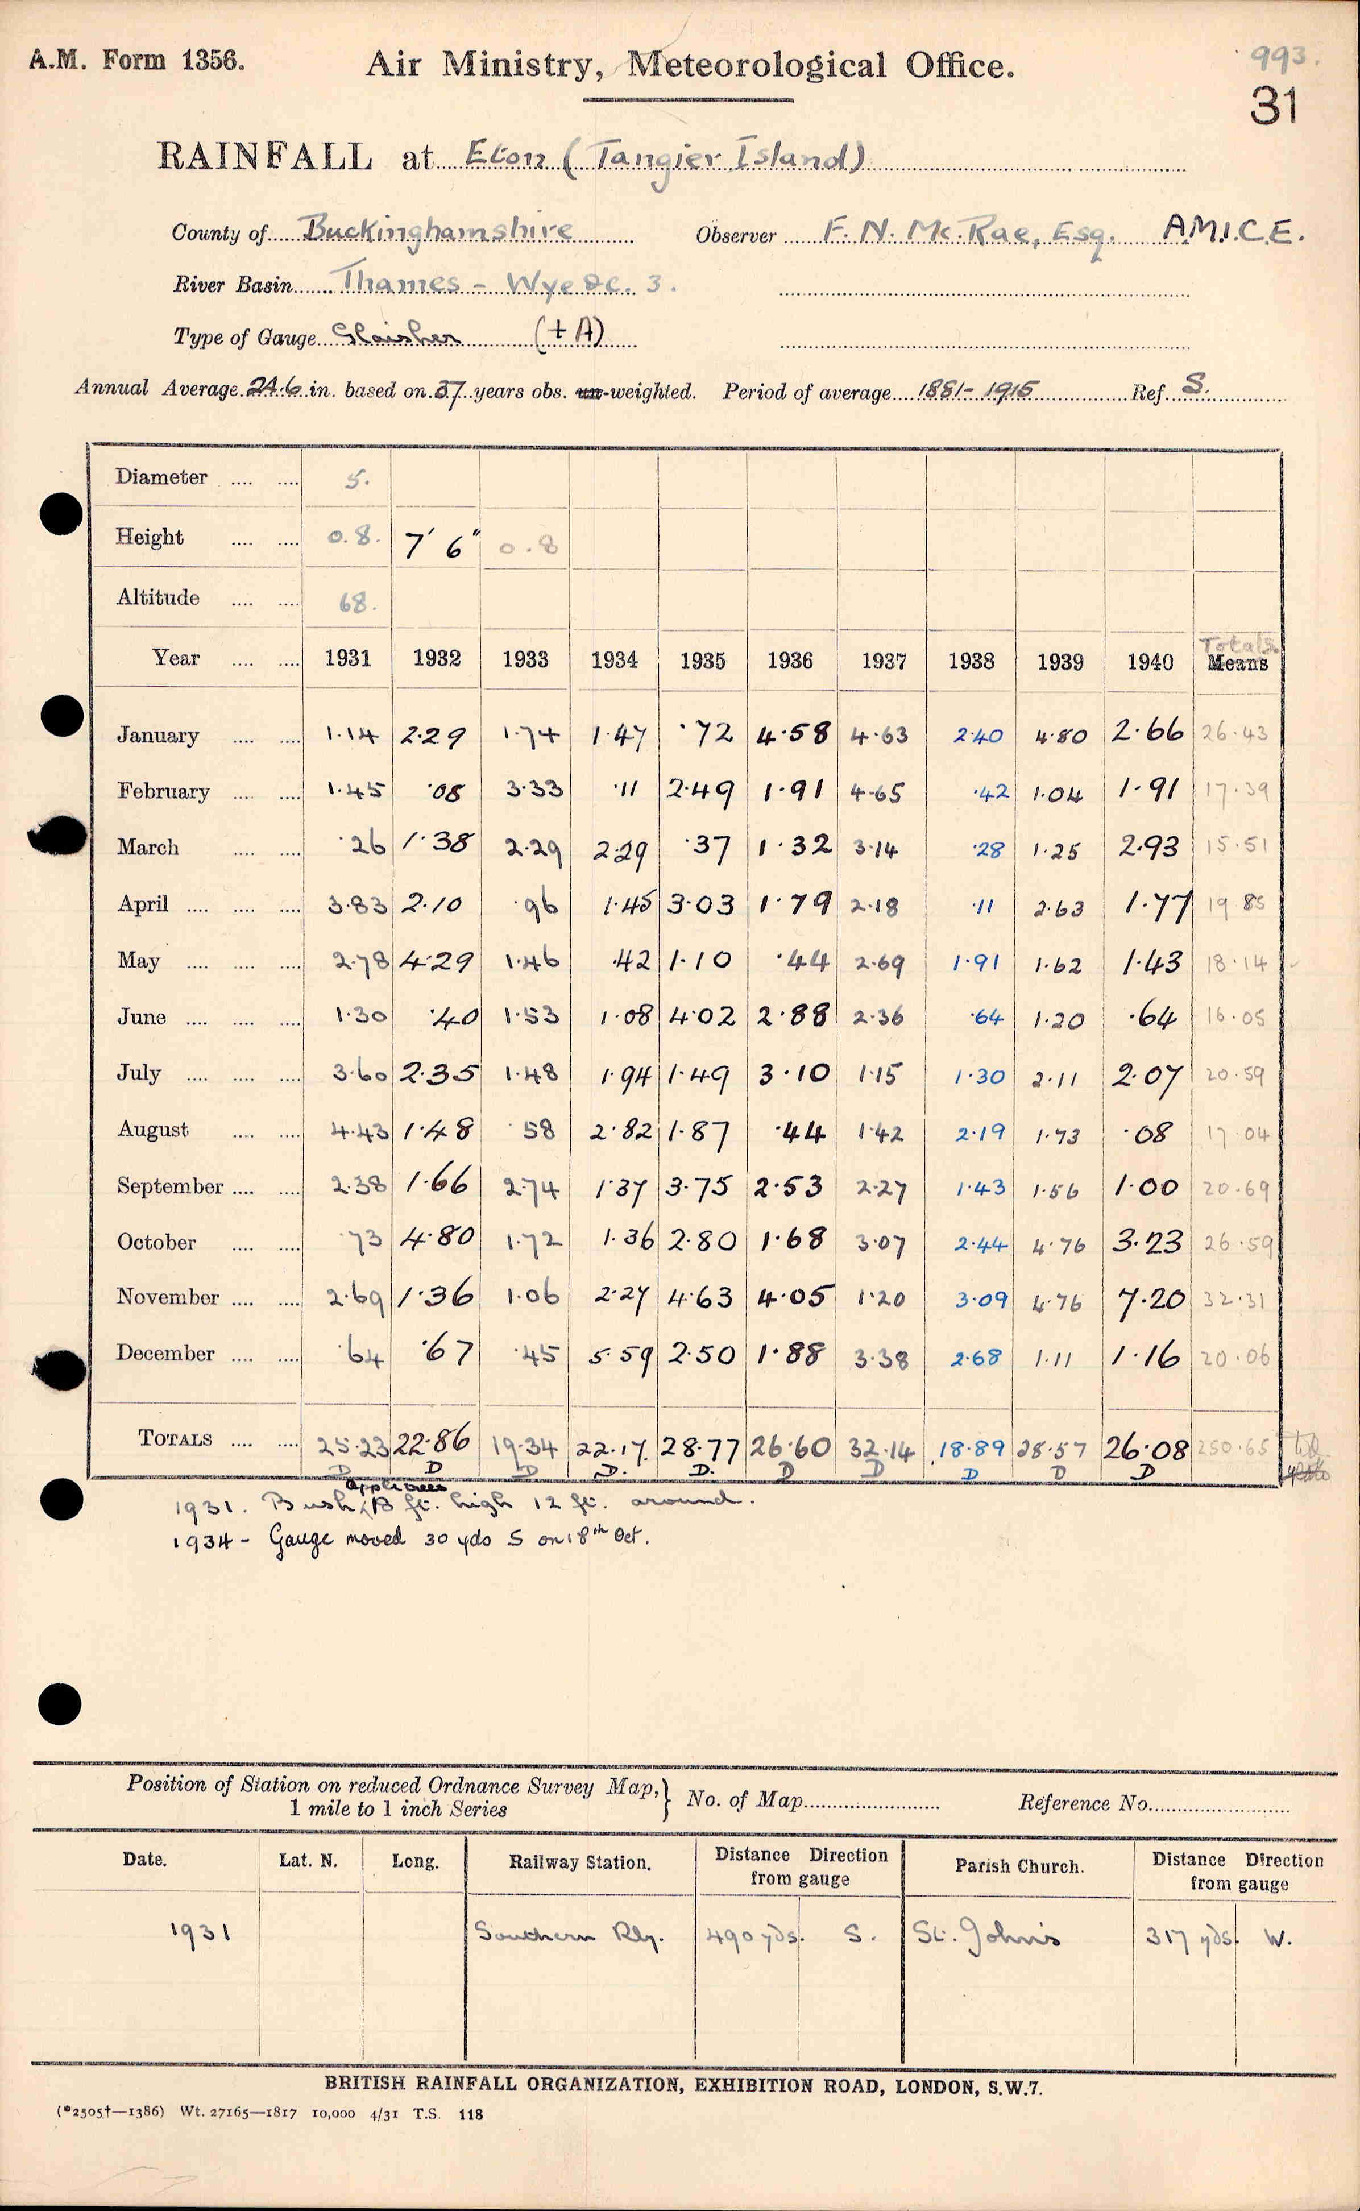 A.M. Form 1356.
Air Ministry, Meteorological Office.
993.
31
RAINFALL at Eton (Tangier Island)
County of Buckinghamshire Observer F. N. Mc. Rae, Esq. A.M.I.C.E.
River Basin Thames - Wye &c. 3.
Type of Gauge Glaisher (+A)
Annual Average 24.6 in. based on 37 years obs. un-weighted. Period of average 1881-1915 Ref S.
Diameter .... .... 5.
Height .... .... 0.8. 7' 6" 0.8
Altitude .... .... 68.
Totals
Year .... .... 1931 1932 1933 1934 1935 1936 1937 1938 1939 1940 Means
January .... .... 1.14 2.29 1.74 1.47 .72 4.58 4.63 2.40 4.80 2.66 26.43
February .... .... 1.45 .08 3.33 .11 2.49 1.91 4.65 .42 1.04 1.91 17.39
March .... .... .26 1.38 2.29 2.29 .37 1.32 3.14 .28 1.25 2.93 15.51
April .... .... .... 3.83 2.10 .96 1.45 3.03 1.79 2.18 .11 2.63 1.77 19.85
May .... .... .... 2.78 4.29 1.46 .42 1.10 .44 2.69 1.91 1.62 1.43 18.14
June .... .... .... 1.30 .40 1.53 1.08 4.02 2.88 2.36 .64 1.20 .64 16.05
July .... .... .... 3.60 2.35 1.48 1.94 1.49 3.10 1.15 1.30 2.11 2.07 20.59
August .... .... 4.43 1.48 .58 2.82 1.87 .44 1.42 2.19 1.73 .08 17.04
September .... .... 2.38 1.66 2.74 1.37 3.75 2.53 2.27 1.43 1.56 1.00 20.69
October .... .... .73 4.80 1.72 1.36 2.80 1.68 3.07 2.44 4.76 3.23 26.59
November .... .... 2.69 1.36 1.06 2.27 4.63 4.05 1.20 3.09 4.76 7.20 32.31
December .... .... .64 .67 .45 5.59 2.50 1.88 3.38 2.68 1.11 1.16 20.06
TOTALS .... .... 25.23 22.86 19.34 22.17. 28.77 26.60 32.14 18.89 28.57 26.08 250.65
D D D D. D. D D D D D
apple trees
1931. Bush 18 ft. high 12 ft. around.
1934 - Gauge moved 30 yds S on 18th Oct.
Position of Station on reduced Ordnance Survey Map,} No. of Map Reference No.
1 mile to 1 inch Series
Date. Lat. N. Long. Railway Station. Distance Direction from gauge Parish Church. Distance Direction from gauge
1931 Southern Rly. 490 yds. S. St. John's 317 yds. W.
BRITISH RAINFALL ORGANIZATION, EXHIBITION ROAD, LONDON, S.W.7.
(*2505†—1386) Wt. 27165—1817 10,000 4/31 T.S. 118